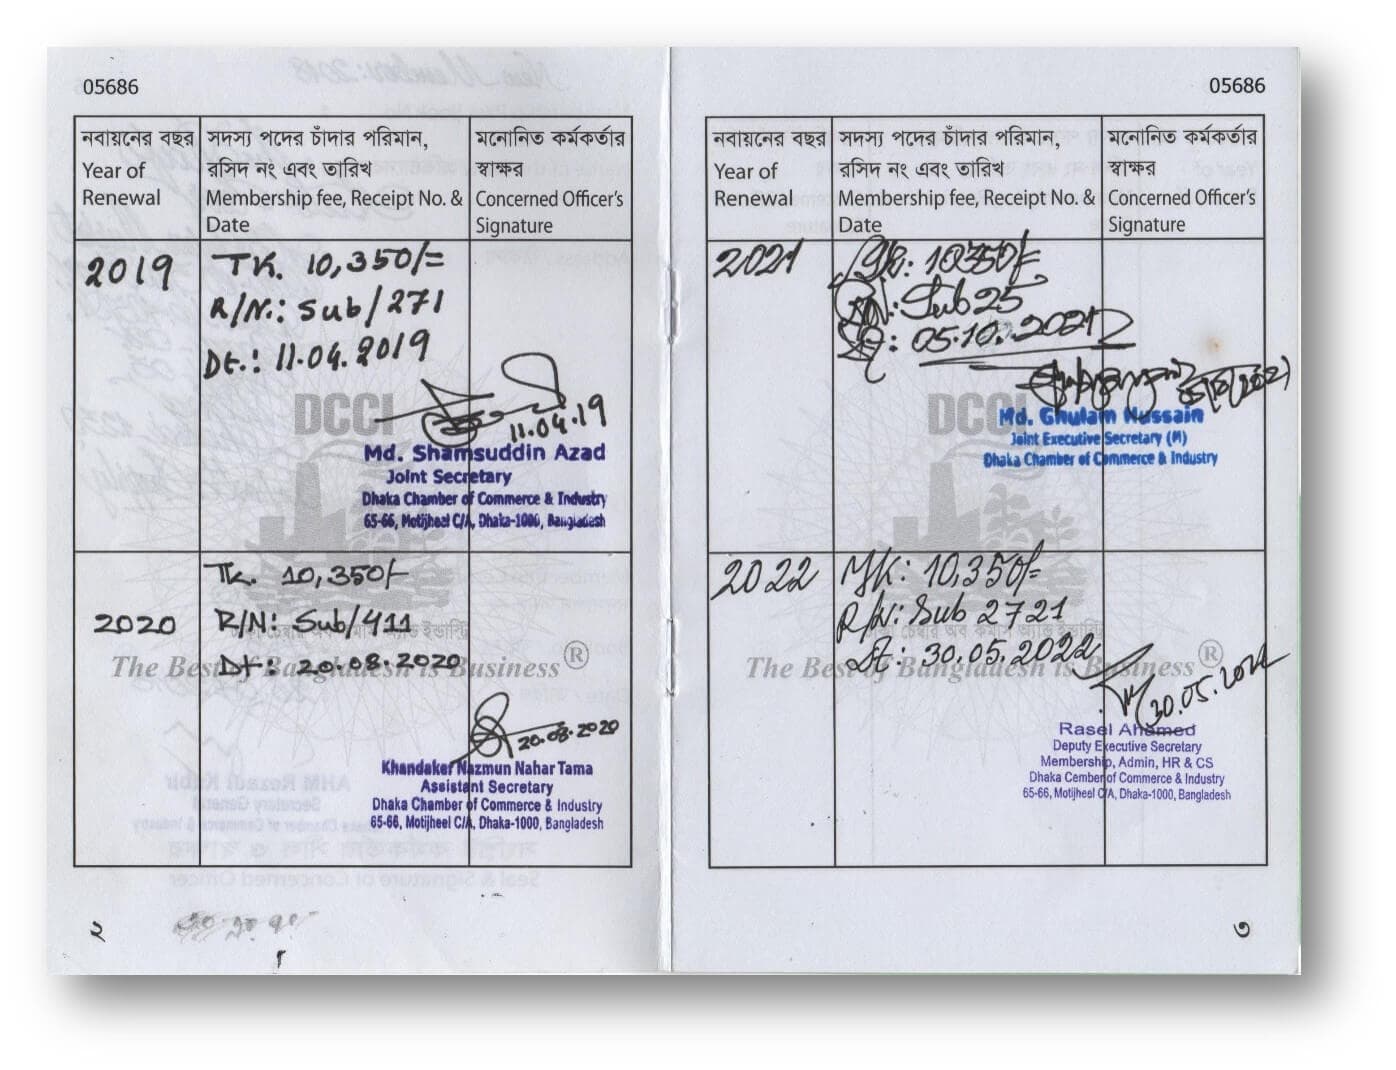 05686
নবায়নের বছর
Year of
Renewal
সদস্য পদের চাঁদার পরিমান,
রসিদ নং এবং তারিখ
Membership fee, Receipt No. &
Date
মনোনিত কর্মকর্তার
স্বাক্ষর
Concerned Officer's
Signature
2019
TK. 10,350/=
R/N.: Sub/271
Dt.: 11.04.2019
11.04.19
DCCI
Md. Shamsuddin Azad
Joint Secretary
Dhaka Chamber of Commerce & Industry
65-66, Motijheel C/A, Dhaka-1000, Bangladesh
2020
TK. 10,350/-
R/N: Sub/411
Dt: 20.08.2020
The Best of Bangladesh is Business®
20.08.2020
Khandaker Nazmun Nahar Tama
Assistant Secretary
Dhaka Chamber of Commerce & Industry
65-66, Motijheel C/A, Dhaka-1000, Bangladesh
২
05686
নবায়নের বছর
Year of
Renewal
সদস্য পদের চাঁদার পরিমান,
রসিদ নং এবং তারিখ
Membership fee, Receipt No. &
Date
মনোনিত কর্মকর্তার
স্বাক্ষর
Concerned Officer's
Signature
2021
10350/-
Sub 25
05.10.2021
DCCI
Md. Ghulam Hussain
Joint Executive Secretary (M)
Dhaka Chamber of Commerce & Industry
2022
TK: 10,350/=
R/N: Sub 2721
Dt: 30.05.2022
The Best of Bangladesh is Business®
30.05.2022
Rasel Ahamed
Deputy Executive Secretary
Membership, Admin, HR & CS
Dhaka Cember of Commerce & Industry
65-66, Motijheel C/A, Dhaka-1000, Bangladesh
৩